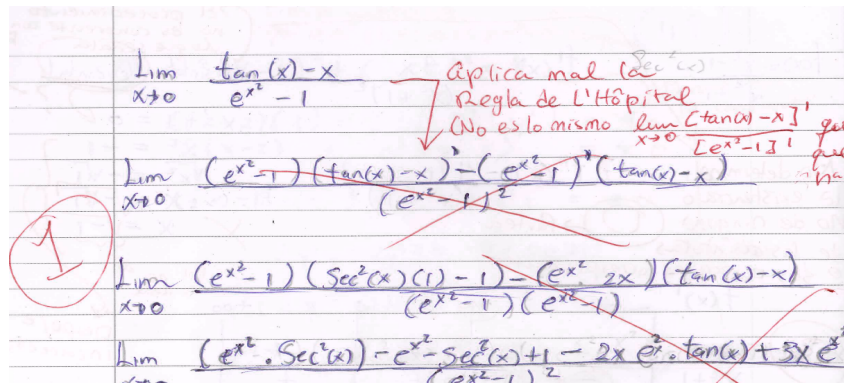 Lim x→0 (tan(x) - x)/(e^(x²) - 1) Aplica mal la Sec²(x)
Regla de L'Hôpital
(No es lo mismo lim x→0 [tan(x) - x]'/[e^(x²) - 1]'
Lim x→0 ((e^(x²) - 1)(tan(x) - x)' - (e^(x²) - 1)'(tan(x) - x))/(e^(x²) - 1)²
1
Lim x→0 ((e^(x²) - 1)(Sec²(x)(1) - 1) - (e^(x²) · 2x)(tan(x) - x))/((e^(x²) - 1)(e^(x²) - 1))
Lim x→0 ((e^(x²) · Sec²(x)) - e^(x²) - Sec²(x) + 1 - 2x e^(x²) · tan(x) + 3x e^(x²)/(e^(x²) - 1)²